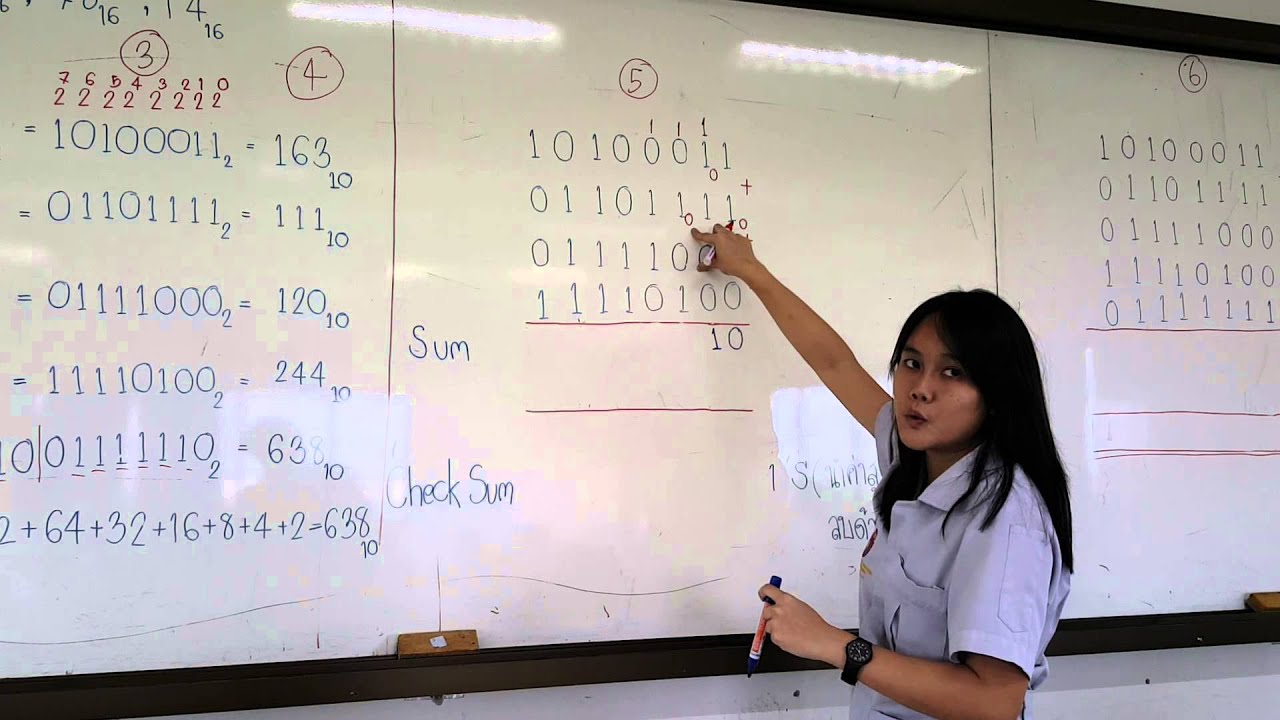 16, 14₁₆
3
7 6 5 4 3 2 1 0
2 2 2 2 2 2 2 2
= 10100011₂ = 163₁₀
= 01101111₂ = 111₁₀
= 01111000₂ = 120₁₀
= 11110100₂ = 244₁₀
10|01111110₂ = 638₁₀
2+64+32+16+8+4+2=638₁₀
4
5
1 1 1
10100011
0
01101111 +
0 0
011110
11110100
Sum 10
Check Sum
1'S(
6
10100011
01101111
01111000
11110100
01111111